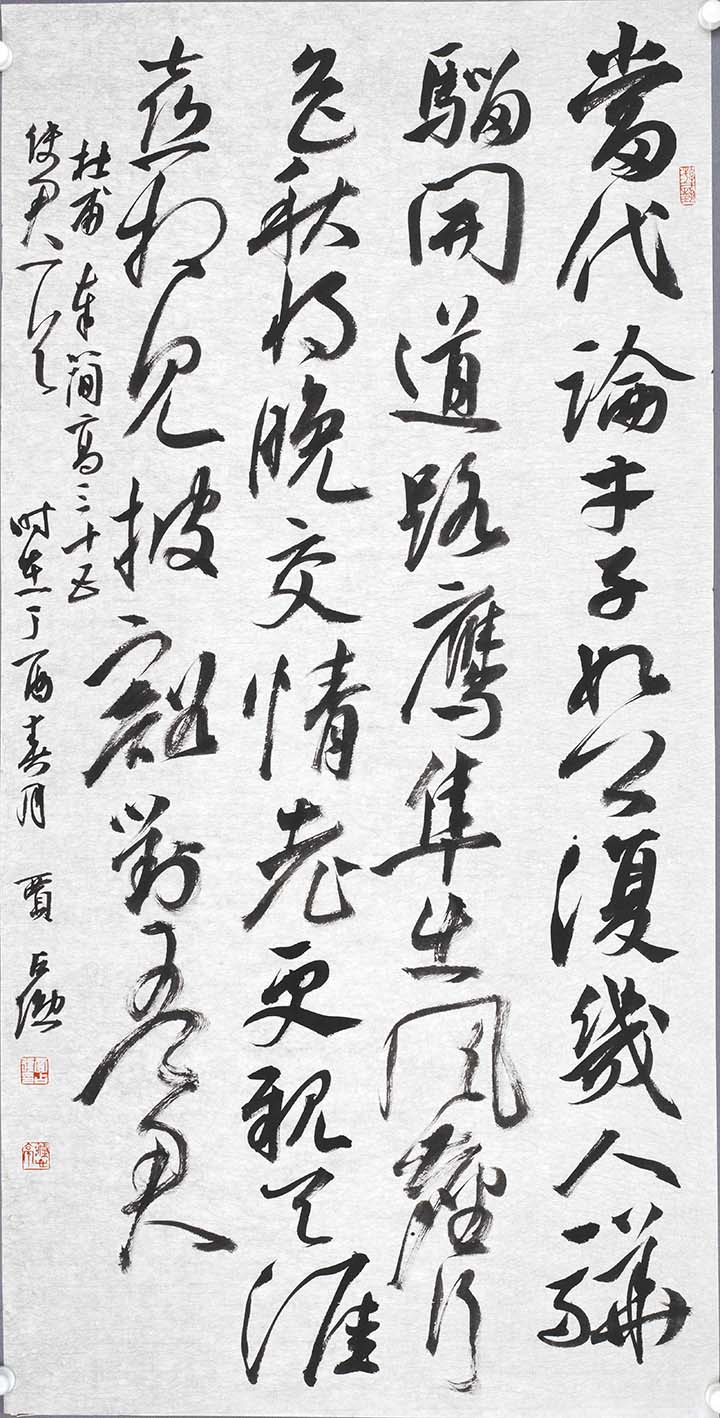 當代論才子如公復幾人驊
騮開道路鷹隼出風塵行
色秋將晚交情老更親天涯
喜相見披豁對吾君
杜甫 奉簡高三十五
使君一首
時在丁酉春月 賈占